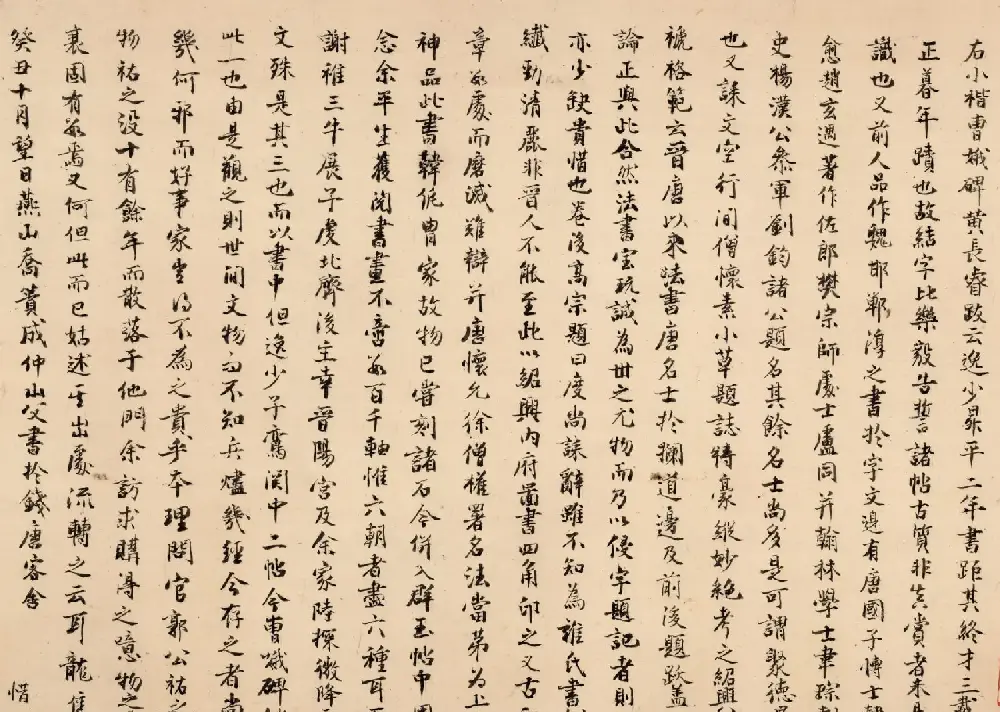 右小楷曹娥碑黄長睿跋云逸少昇平二年書距其終才三載
正暮年蹟也故結字比樂毅告誓諸帖古質非真賞者未易
識也又前人品作魏邯鄲淳之書於字文邉有唐國子博士韓
愈趙玄遇著作佐郎樊宗師處士盧同并翰林學士韋琮
史楊漢公叅軍劉鈞諸公題名其餘名士尚多是可謂聚德
也又誄文空行間僧懷素小草題誌特豪縱妙絶考之紹興
琥格範玄晉唐以来法書唐名士於獮道邉及前後題跋盖
論正與此合然法書宝玩誠為丗之尤物而乃以侵字題記者則
亦少缺貴惜也卷後髙宗題曰度尚誄辭雖不知為誰氏書
纎勁清麗非晉人不能至此以紹興内府啚書四角印之又古
章數處而磨滅難辯并唐懷允徐僧權署名法當第為上
神品此書韓侂胄家故物已嘗刻諸石今併入群玉帖中
念余平生獲閲書畫不啻數百千軸惟六朝者盡六種耳
謝稚三牛展子虔北齊後主幸晉陽宫及余家陸探微降
文殊是其三也而以書中但逸少子鸞閣中二帖今曹娥碑
此一也由是觀之則世間文物詎不知兵燼幾經今存之者尚
幾何邪而好事家豈得不為之貴乎本理問官郭公祐之
物祐之没十有餘年而散落于他門余訪求購淂之噫物之
襄固有數焉又何但此而已姑述其出處流轉之云耳龍集
癸丑十月朢日燕山喬蕢成仲山父書於錢唐客舍
惜